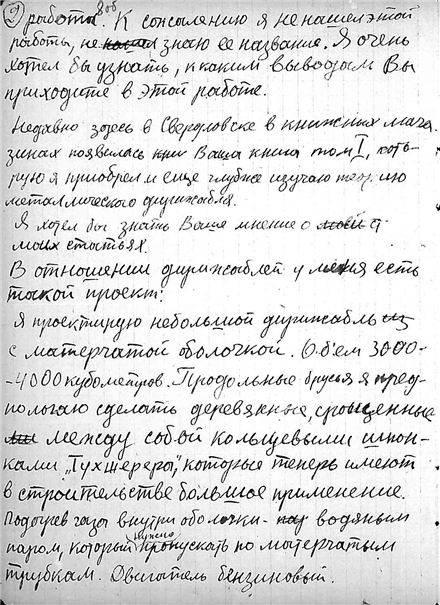 2) работы. К сожалению я не нашел этой
работы, не знаю ее название. Я очень
хотел бы узнать, к каким выводам Вы
приходите в этой работе.
Недавно здесь в Свердловске в книжных мага-
зинах появилась кни Ваша книга том I, кото-
рую я приобрел и еще глубже изучаю теорию
металлического дирижабля.
Я хотел бы знать Ваше мнение о моей о
моих статьях.
В отношении дирижаблей у меня есть
такой проект:
Я проектирую небольшой дирижабль из
с матерчатой оболочкой. Об'ем 3000-
-4000 кубометров. Продольные брусья я пред-
пологаю сделать деревянные, срощенные
между собой кольцевыми шпон-
ками "Тухшерера", которые теперь имеют
в строительстве большое применение.
Подогрев газа внутри оболочки - пар водяным
паром, который нужно пропускать по матерчатым
трубкам. Двигатель бензиновый.